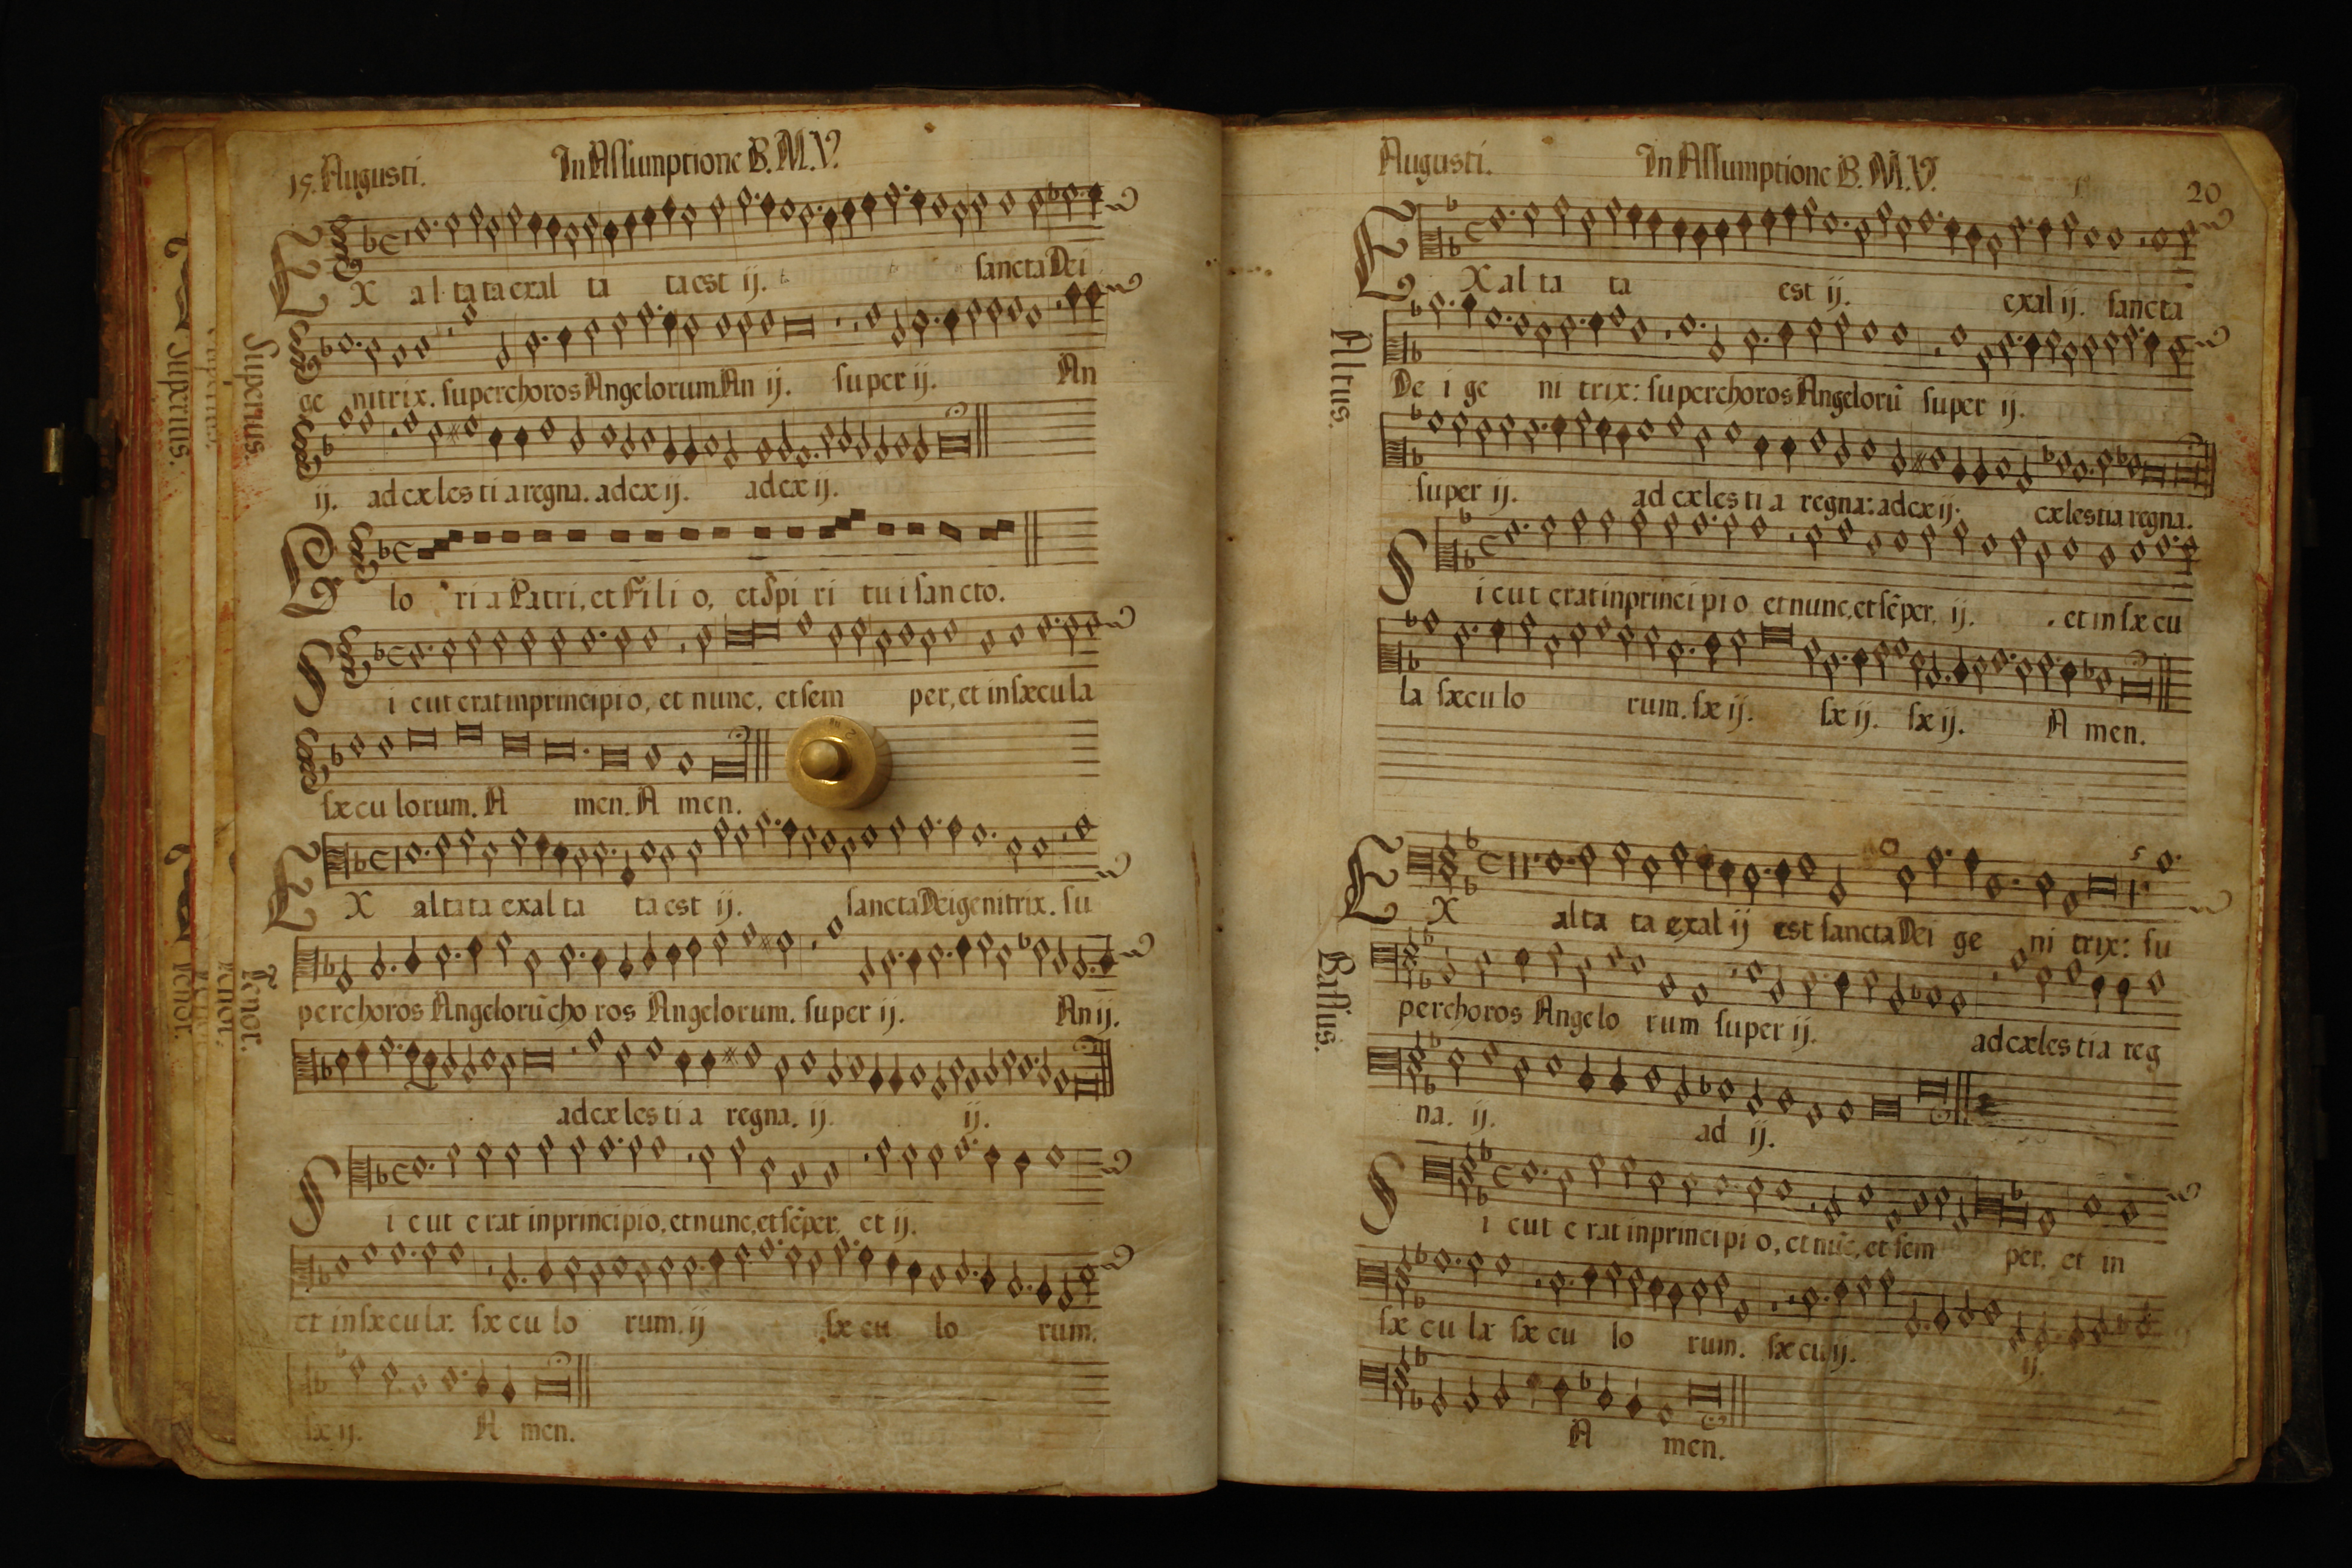 15. Augusti. In Assumptione B. M. V.
EX al ta ta exal ta ta est ij. sancta Dei
ge nitrix. super choros Angelorum An ij. super ij. An
ij. ad cælesti a regna. ad cæ ij. ad cæ ij.
Glo ri a Patri, et Fili o, et Spi ri tu i sancto.
Si cut erat in principi o, et nunc, et sem per, et in sæcu la
sæcu lorum. A men. A men.
EX altata exal ta ta est ij. sancta Dei genitrix. su
per choros Angelorũ cho ros Angelorum. super ij. An ij.
ad cælesti a regna. ij. ij.
Si cut e rat in principio, et nunc, et sẽper, et ij.
et in sæcula. sæ cu lo rum. ij sæ cu lo rum.
sæ ij. A men.
Superius.
Tenor.
Superius.
Tenor.
Tenor.
Augusti. In Assumptione B. M. V. 20
EX al ta ta est ij. exal ij. sancta
De i ge ni trix: super choros Angelorũ super ij.
super ij. ad cælesti a regna: ad cæ ij. cælestia regna.
Si cut erat in principi o et nunc, et sẽper, ij. et in sæ cu
la sæcu lo rum. sæ ij. sæ ij. sæ ij. A men.
EX alta ta exal ij est sancta Dei ge ni trix: su
per choros Angelo rum super ij. ad cælestia reg
na. ij. ad ij.
Si cut e rat in principi o, et nũc, et sem per, et in
sæ cu la sæ cu lo rum. sæ cu ij. ij.
A men.
Altus.
Bassus.